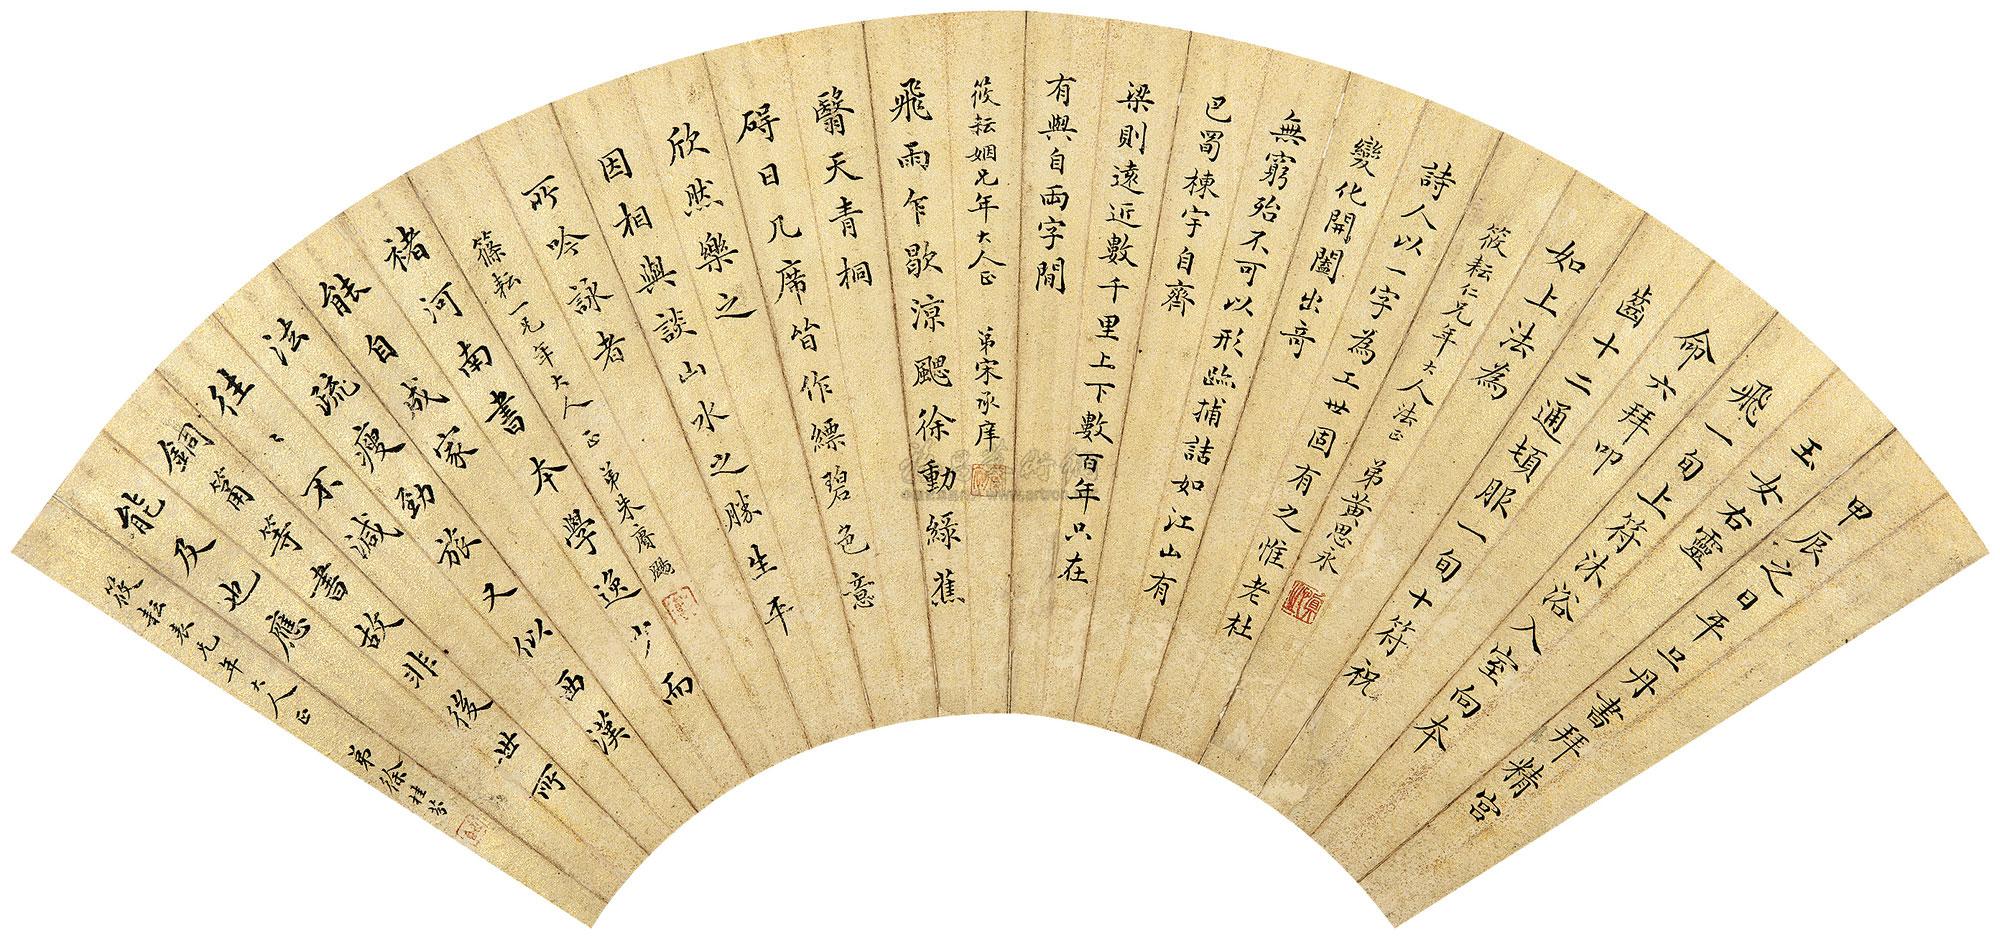 甲辰之日平旦丹書拜精宮
玉女右靈
飛一旬上符沐浴入室向本
命六拜叩
齒十二通頓服一旬十符祝
如上法為
筱耘仁兄年大人法正　弟黃思永
詩人以一字為工世固有之惟老杜
變化開闔出奇
無窮殆不可以形跡捕詰如江山有
巴蜀棟宇自齊
梁則遠近數千里上下數百年只在
有與自兩字間
筱耘姻兄年大人正　弟宋承庠
飛雨乍歇涼颸徐動綠蕉
翳天青桐
碍日几席皆作縹碧色意
欣然樂之
因相與談山水之勝生平
所吟詠者
篠耘一兄年大人正　弟朱賡颺
褚河南書本學逸少而
能自成家
法疏瘦勁旅又似西漢
往〻不減
銅筩等書故非後世所
能及也應
筱耘表兄年大人正　弟徐桂芬